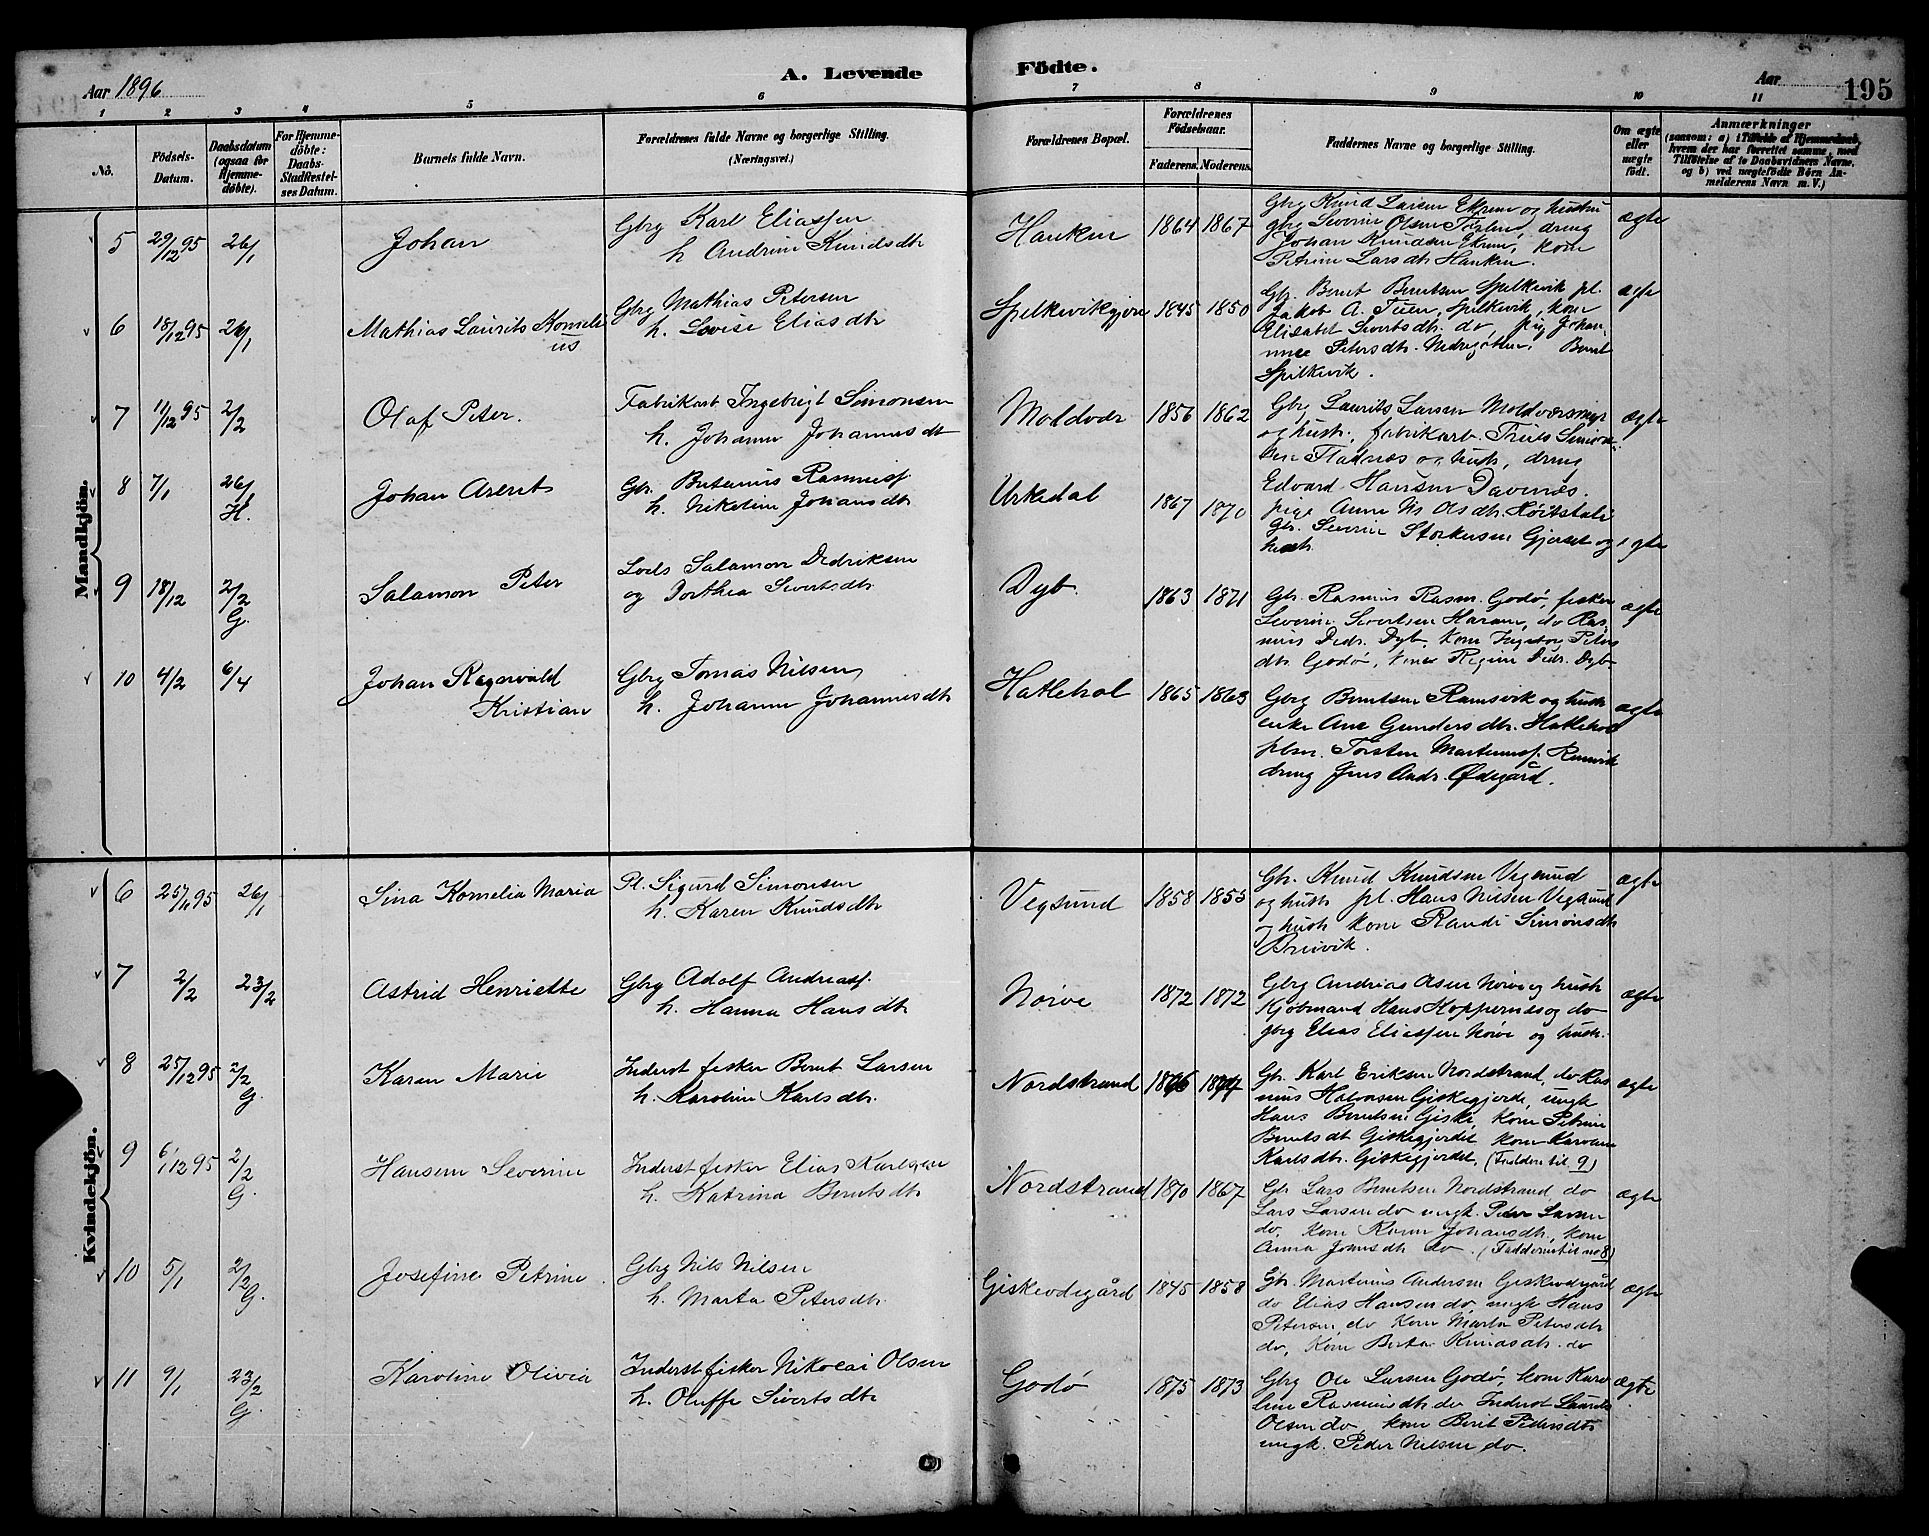 Aar 1896
A. Levende
Födte.
Aar
195
1 2 3 4 5 6 7 8 9 10 11
No.
Födsels-
Datum.
Daabsdatum
(ogsaa for
Hjemme-
døbte).
For Hjemme-
döbte:
Daabs-
Stadfæstel-
ses Datum.
Barnets fulde Navn.
Forældrenes fulde Navne og borgerlige Stilling.
(Næringsvei.)
Forældrenes Bopæl.
Forældrenes
Födselsaar.
Faderens. Moderens.
Faddernes Navne og borgerlige Stilling.
Om ægte
eller
uægte
födt.
Anmærkninger
(saasom: a) i Tilfælde af Hjemmedaab,
hvem der har forrettet samme, med
Tilföielse af to Daabsvidners Navne,
og b) ved uægtefödte Börn An-
melderens Navn m. V.)
Mandkjön.
5 29/12 95 26/1
Johan
Gbrg Karl Eliassen
h Andrine Knudsdtr
Hanken
1864 1867
Gbrg Knud Larsen Ekrem og hustru
gbrg Severin Olsen dreng
Johan Knudsen Ekrem, kone
Petrine Larsdtr Hanken.
ægte
6 18/12 95 26/1
Mathias Laurits Korneli
us
Gbrg Mathias Petersen
h. Lovise Eliasdtr
Spilkevikgjær
1845 1850
Gbr. Bernt Berntsen Spilkevik pl.
Jakob A. Tuen, Spilkevik, kone
Elisabet Sivertsdtr. do, pig Johan-
nne Petersdtr. Bernt
Spilkevik.
ægte
7 11/12 95 2/2
Olaf Peter.
Fabrikarb. Ingebrigt Simonsen
h. Johanne Johannesdtr
Moldvær
1856 1862
Gbrg Laurits Larsen
og hust., fabrikarb. Truls Simon-
sen Flatnes og hust., dreng
Edvard Hansen Davenes.
ægte
8 7/1 26/1
H.
Johan Arent
Gbr. Rasmusf
h. Nikoline Johansdtr
Urkedal
1867 1870
pige Anne M. Olsdtr.
Gbr. Severin Storkersen Gjerset og
hustr.
ægte
9 18/12 2/2
G.
Salamon Peter
Lods Salamon Dedriksen
og Dorthea Sivertsdtr
Dyb.
1863 1871
Gbr. Rasmus Rasm. Godø, fisker
Severin Sivertsen Haram, do Ras-
mus Dedr. Dyb, kone Ingeborg Peters
dtr. Godø, Regine Dedr. Dyb
ægte
10 4/2 6/4
Johan Ragnvald
Kristian
Gbrg Tomas Nilsen
h. Johanne Johannesdtr
Hatlehol
1865 1863
Gbrg Berntsen Ramsvik og hustr
enke Ane Gundersdtr. Hatlehol
plsm. Torsten Martinusf.
dreng Jens Andr. Ødegård.
ægte
Kvindekjön.
6 25/11 95 26/1
Sina Kornelia Maria
Pl. Sigurd Simonsen
h. Karen Knudsdtr
Vegsund
1858 1855
Gbr. Knud Knudsen Vegsund
og hustr pl. Hans Nilsen Vegsund
og hustr kone Randi Simonsdtr
Breivik.
ægte
7 2/2 23/2
Astrid Henriette
Gbrg Adolf Andreasf.
h. Hanna Hansdtr
Nørve
1872 1872
Gbrg Andreas Olsen Nørve og hustr
Kjøbmand Hans Koppernæs og do
gbrg Elias Eliassen Nørve og hustr.
ægte
8 25/12 95 2/2
G.
Karen Marie
Inderst fisker Bernt Larsen
h. Karoline Karlsdtr.
Nordstrand
Gbr. Karl Eriksen Nordstrand, do Ras-
mus Giskegjerde, ungk
Hans Berntsen Giske, kone Petrine
Berntsdt Giskegjerdet, kone Karoline
Karlsdtr. Giskegjerdet. (Faddere til 9)
ægte
9 6/12 95 2/2
G.
Hansem Severine
Inderst fisker Elias Karlsen
h. Katrina Berntsdtr
Nordstrand
1870 1867
Gbr Lars Berntsen Nordstrand, do
Lars Larsen do ungk. Peder Larsen
do, kone Karen Johansdtr, kone
Anna do. (Fadderne til no 8)
ægte
10 5/1 2/2
G.
Josefine Petrine
Gbrg Nils Nilsen
h. Marta Petersdtr.
Giskeødegård
1845 1858
Gbr. Martinus Andersen Giskeødegård
do Elias Hansen do, ungk Hans
Petersen do kone Marta Petersdtr
do, kone Berta Knudsdtr. do
ægte
11 9/1 23/2
G.
Karoline Olivia
Inderst fisker Nikolai Olsen
h. Oluffe Sivertsdtr
Godø
1875 1873
Gbrg Ole Larsen Godø, kone Karo
line Rasmusdtr do Inderst Laurits
Olsen do, kone Berit Pedersdtr
ungk. Peder Nilsen do.
ægte